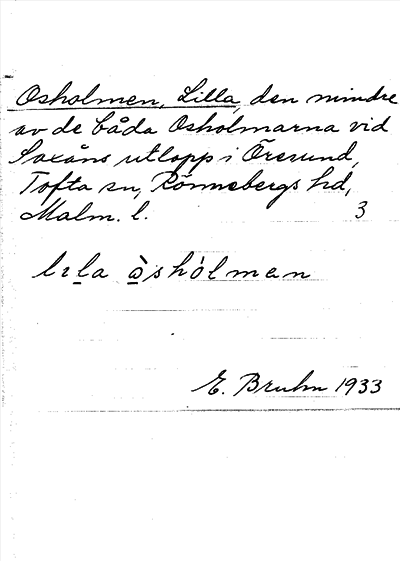 Osholmen, Lilla, den mindre
av de båda Osholmarna vid
Saxåns utlopp i Öresund,
Tofta sn, Rönnebergs hd,
Malm. l. 3
lɪla òshólmen
E. Bruhn 1933